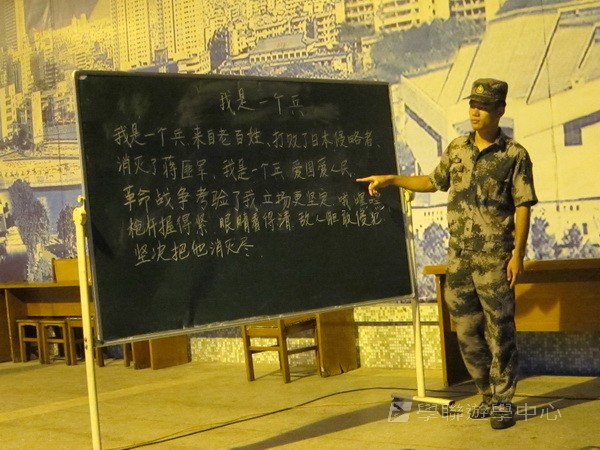 我是一个兵
我是一个兵,来自老百姓,打败了日本侵略者,
消灭了蒋匪军,我是一个兵,爱国爱人民,
革命战争考验了我立场更坚定 嘿嘿嘿
枪杆握得紧 眼睛看得清 敌人胆敢侵犯
坚决把他消灭尽.
學聯遊學中心